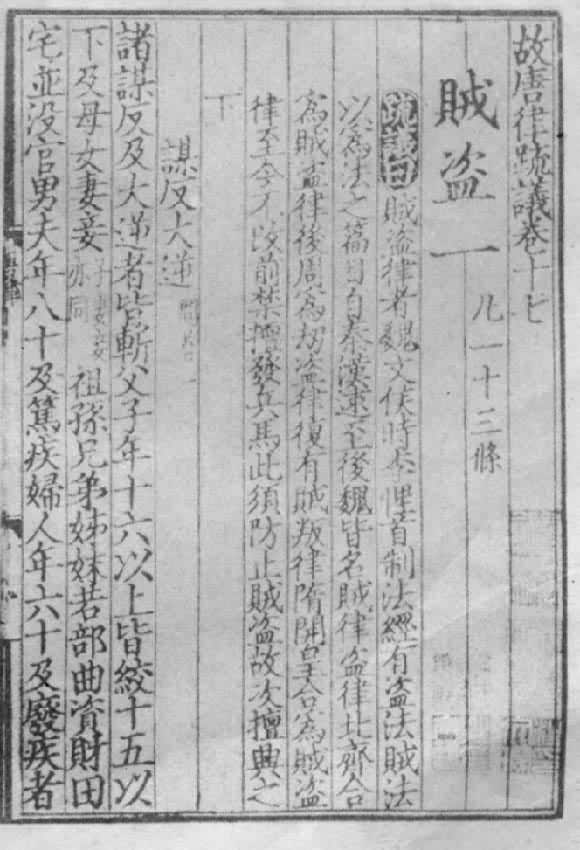 故唐律疏議卷十七
賊盗一
凡一十三條
疏議曰賊盗律者魏文侯時李悝首制法經有盗法賊法
以爲法之篇目自秦漢逮至後魏皆名賊律盗律北齊合
爲賊盗律後周爲刼盗律復有賊叛律隋開皇合爲賊盗
律至今不改前禁擅發兵馬此須防止賊盗故次擅興之
下
謀反大逆
諸謀反及大逆者皆斬父子年十六以上皆絞十五以
下及母女妻妾子妻妾亦同祖孫兄弟姊妹若部曲資財田
宅並没官男夫年八十及篤疾婦人年六十及廢疾者